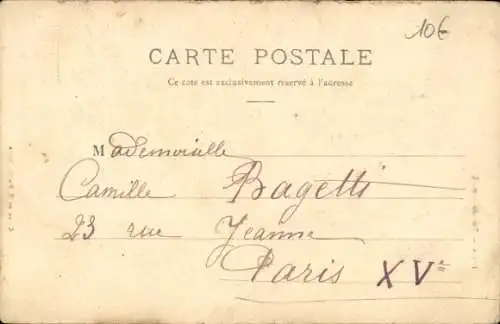 10€
CARTE POSTALE
Ce coté est exclusivement réservé à l'adresse
Mademoiselle
Camille Bagetti
23 rue Jeanne
Paris XVe